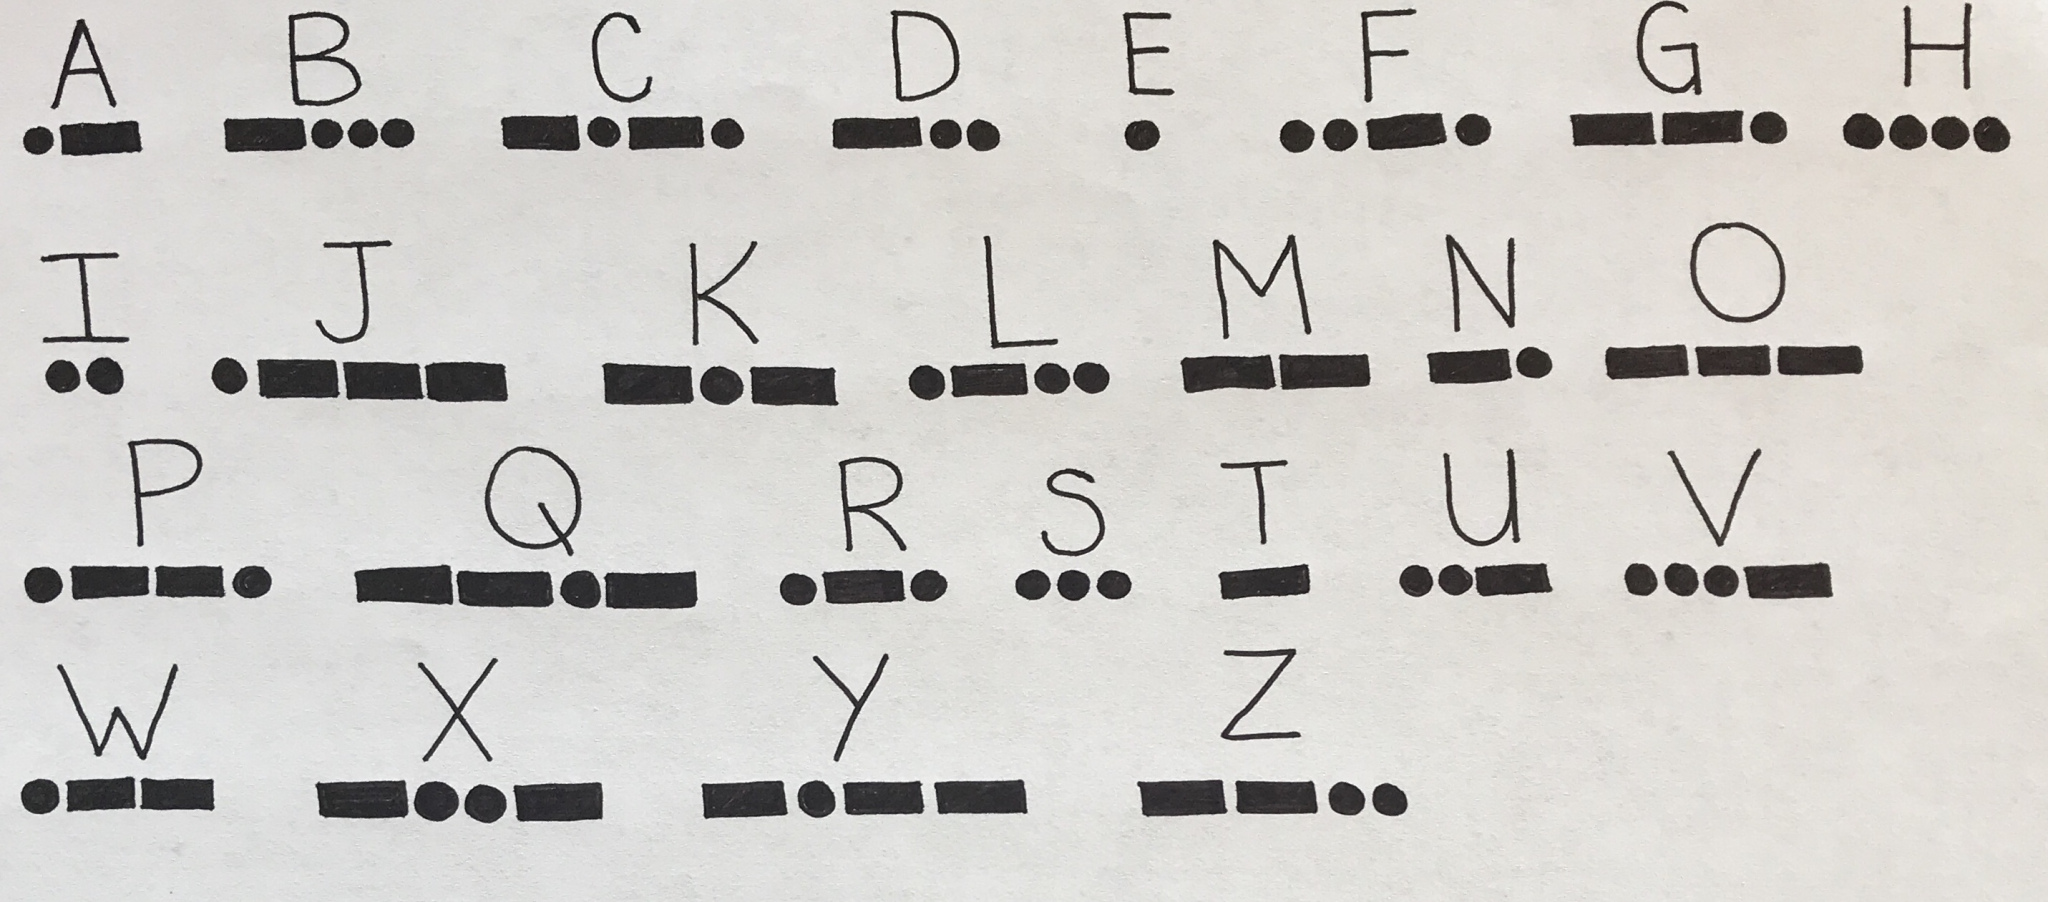 A B C D E F G H
•− −••• −•−• −•• • ••−• −−• ••••
I J K L M N O
•• •−−− −•− •−•• −− −• −−−
P Q R S T U V
•−−• −−•− •−• ••• − ••− •••−
W X Y Z
•−− −••− −•−− −−••